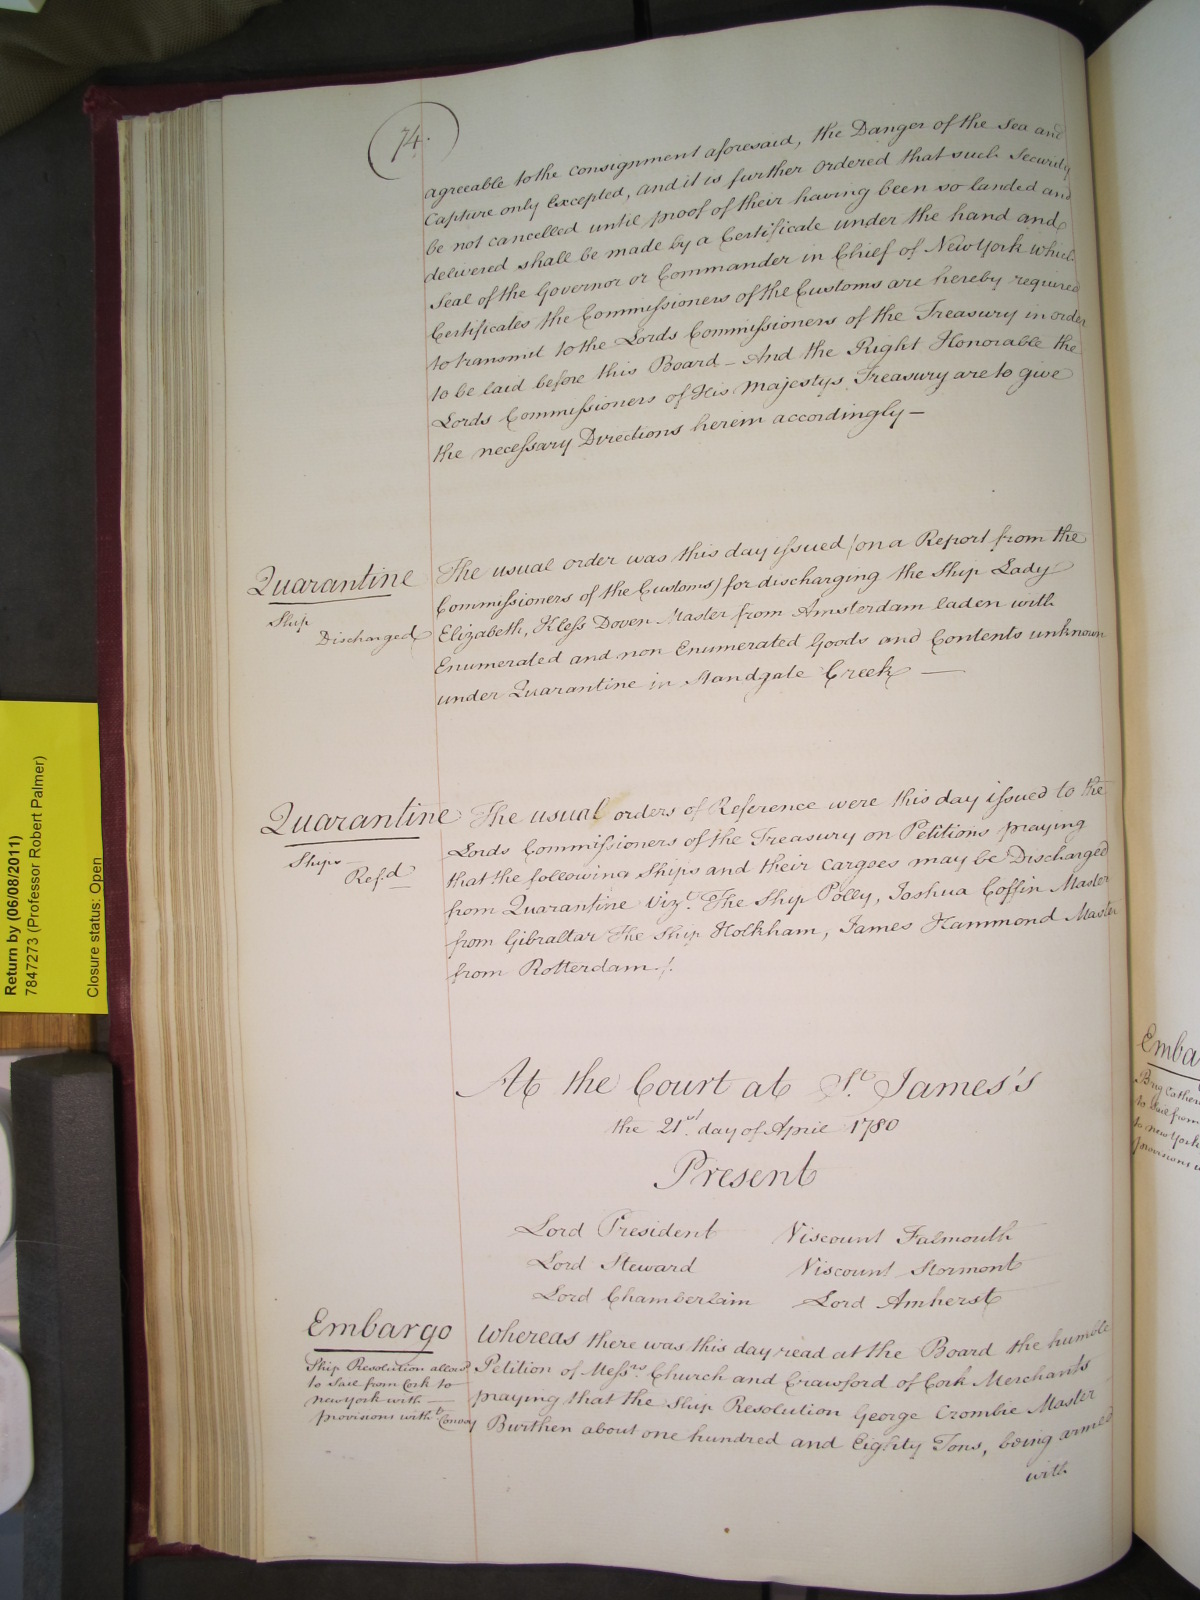 74.
agreeable to the consignment aforesaid, the Danger of the Sea and
Capture only Excepted, and it is further ordered that such Security
be not cancelled until proof of their having been so landed and
delivered shall be made by a Certificate under the hand and
Seal of the Governor or Commander in Chief of New York which
Certificates the Commissioners of the Customs are hereby required
to transmit to the Lords Commissioners of the Treasury in order
to be laid before this Board – And the Right Honorable the
Lords Commissioners of His Majestys Treasury are to give
the necessary Directions herein accordingly –
Quarantine
Ship
Discharged
The usual order was this day issued (on a Report from the
Commissioners of the Customs) for discharging the Ship Lady
Elizabeth, Kless Doven Master from Amsterdam laden with
Enumerated and non Enumerated Goods and Contents unknown
under Quarantine in Standgate Creek —
Quarantine
Ships
Ref.d
The usual orders of Reference were this day issued to the
Lords Commissioners of the Treasury on Petitions praying
that the following Ships and their Cargoes may be Discharged
from Quarantine Vizt. The Ship Polly, Joshua Coffin Master
from Gibraltar The Ship Holkham, James Hammond Master
from Rotterdam /.
At the Court at St. James's
the 21st. day of April 1780
Present
Lord President Viscount Falmouth
Lord Steward Viscount Stormont
Lord Chamberlain Lord Amherst
Embargo
Ship Resolution allowd
to Sail from Cork to
New York with —
provisions witht Convoy
Whereas there was this day read at the Board the humble
Petition of Messrs. Church and Crawford of Cork Merchants
praying that the Ship Resolution George Crombie Master
Burthen about one hundred and Eighty Tons, being armed
with
Return by (06/08/2011)
7847273 (Professor Robert Palmer)
Closure status: Open
Emba
Brig Cathen
to Sail from
to New York
provisions w